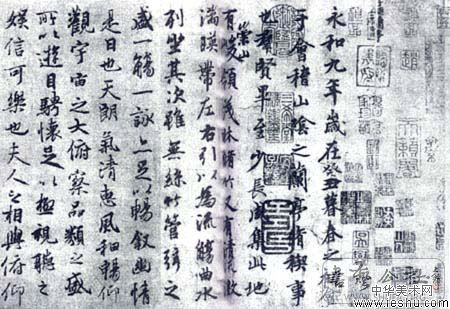 永和九年歲在癸丑暮春之初
于會稽山陰之蘭亭脩禊事
也羣賢畢至少長咸集此地
有崇山峻領茂林脩竹又有清流激
湍暎帶左右引以為流觴曲水
列坐其次雖無絲竹管弦之
盛一觴一詠亦足以暢敘幽情
是日也天朗氣清惠風和暢仰
觀宇宙之大俯察品類之盛
所以遊目騁懷足以極視聽之
娛信可樂也夫人之相與俯仰
中华美术网